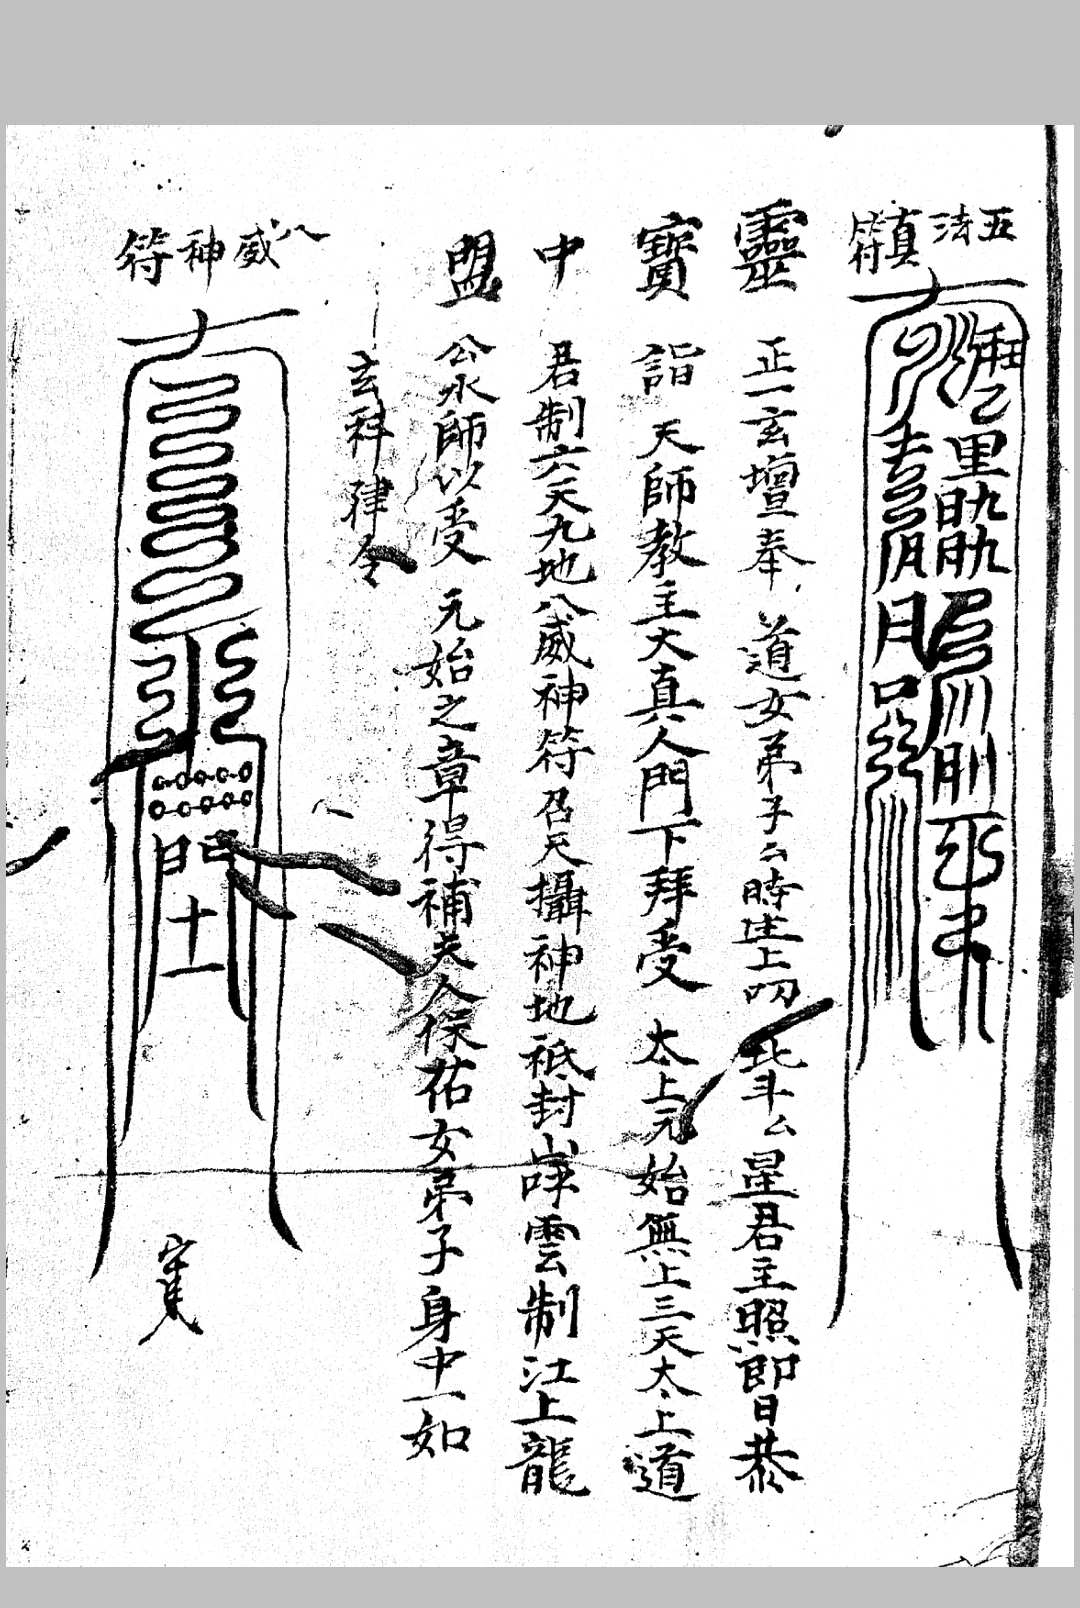 五法
真符
靈 正一玄壇奉 道女弟子厶時建上叩 北斗厶星君主照即日恭
寶 詣 天師教主大真人門下拜受 太上元始無上三天太上道
中 君制六天九地八威神符召天攝神地祇封山呼雲制江上龍
盟 公水師以受 元始之章得補夫人保佑女弟子身中一如
玄科律令
八威神符